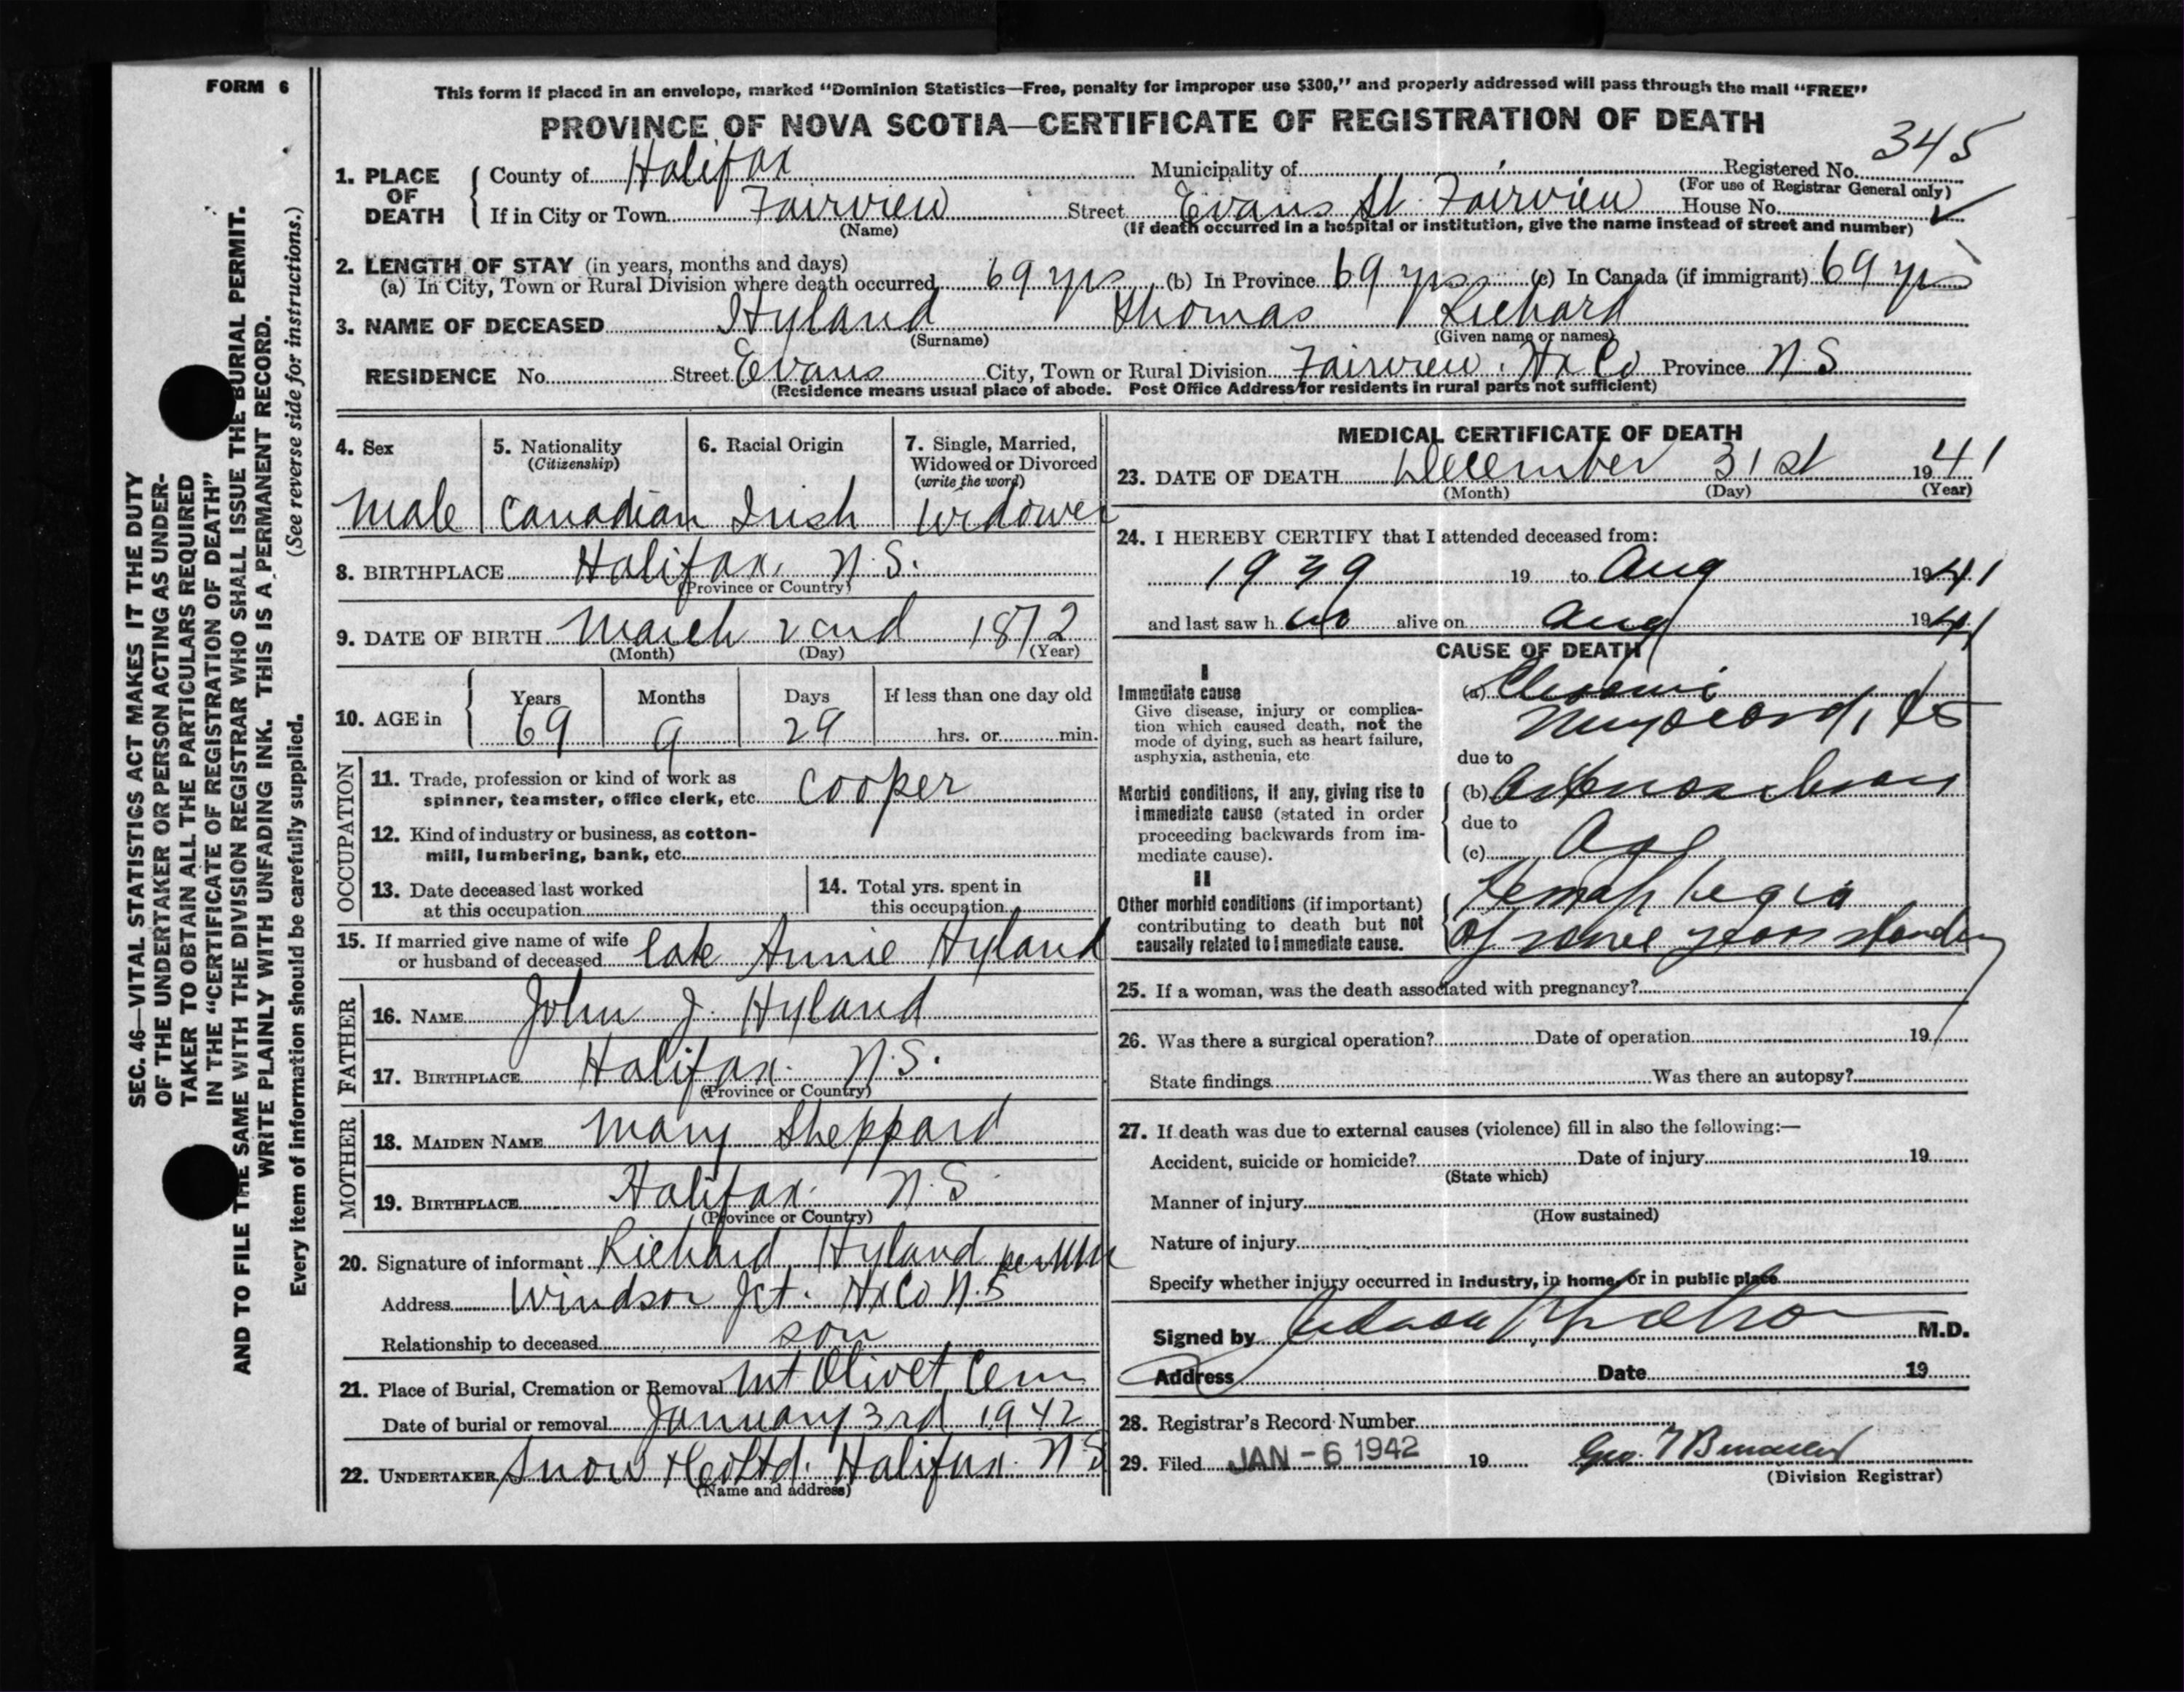 FORM 6
This form if placed in an envelope, marked "Dominion Statistics—Free, penalty for improper use $300," and properly addressed will pass through the mail "FREE"
PROVINCE OF NOVA SCOTIA—CERTIFICATE OF REGISTRATION OF DEATH
345
1. PLACE OF DEATH County of Halifax Municipality of Registered No.
(For use of Registrar General only)
If in City or Town Fairview Street Evans St. Fairview House No.
(Name) (If death occurred in a hospital or institution, give the name instead of street and number)
2. LENGTH OF STAY (in years, months and days)
(a) In City, Town or Rural Division where death occurred 69 yrs (b) In Province 69 yrs (c) In Canada (if immigrant) 69 yrs
3. NAME OF DECEASED Hyland Thomas Richard
(Surname) (Given name or names)
RESIDENCE No. Street Evans City, Town or Rural Division Fairview. Hx Co Province N.S
(Residence means usual place of abode. Post Office Address for residents in rural parts not sufficient)
4. Sex 5. Nationality 6. Racial Origin 7. Single, Married,
(Citizenship) Widowed or Divorced
(write the word)
Male Canadian Irish Widower
8. BIRTHPLACE Halifax. N.S.
(Province or Country)
9. DATE OF BIRTH March 2nd 1872
(Month) (Day) (Year)
10. AGE in Years Months Days If less than one day old
69 9 29 hrs. or min.
OCCUPATION
11. Trade, profession or kind of work as
spinner, teamster, office clerk, etc. Cooper
12. Kind of industry or business, as cotton-
mill, lumbering, bank, etc.
13. Date deceased last worked
at this occupation
14. Total yrs. spent in
this occupation
15. If married give name of wife
or husband of deceased late Annie Hyland
FATHER
16. NAME John J. Hyland
17. BIRTHPLACE Halifax. N.S.
(Province or Country)
MOTHER
18. MAIDEN NAME Mary Sheppard
19. BIRTHPLACE Halifax. N.S
(Province or Country)
20. Signature of informant Richard Hyland per
Address Windsor Jct. Hx Co N.S
Relationship to deceased son
21. Place of Burial, Cremation or Removal Mt Olivet Cem
Date of burial or removal January 3rd 1942
22. UNDERTAKER Snow & Co Ltd. Halifax. N.S
(Name and address)
MEDICAL CERTIFICATE OF DEATH
23. DATE OF DEATH December 31st 1941
(Month) (Day) (Year)
24. I HEREBY CERTIFY that I attended deceased from:
1939 19 to Aug 1941
and last saw h im alive on Aug 1941
CAUSE OF DEATH
I
Immediate cause
Give disease, injury or complica-
tion which caused death, not the
mode of dying, such as heart failure,
asphyxia, asthenia, etc
(a) Chronic
Myocarditis
due to
Morbid conditions, if any, giving rise to
immediate cause (stated in order
proceeding backwards from im-
mediate cause).
(b) Arteriosclerosis
due to
(c) Age
II
Other morbid conditions (if important)
contributing to death but not
causally related to immediate cause.
Hemaplegia
Of some years standing
25. If a woman, was the death associated with pregnancy?
26. Was there a surgical operation? Date of operation 19
State findings Was there an autopsy?
27. If death was due to external causes (violence) fill in also the following:—
Accident, suicide or homicide? Date of injury 19
(State which)
Manner of injury
(How sustained)
Nature of injury
Specify whether injury occurred in industry, in home, or in public place
Signed by M.D.
Address Date 19
28. Registrar's Record Number
29. Filed JAN - 6 1942 19 Geo.
(Division Registrar)
SEC. 46—VITAL STATISTICS ACT MAKES IT THE DUTY
OF THE UNDERTAKER OR PERSON ACTING AS UNDER-
TAKER TO OBTAIN ALL THE PARTICULARS REQUIRED
IN THE "CERTIFICATE OF REGISTRATION OF DEATH"
AND TO FILE THE SAME WITH THE DIVISION REGISTRAR WHO SHALL ISSUE THE BURIAL PERMIT.
WRITE PLAINLY WITH UNFADING INK. THIS IS A PERMANENT RECORD.
Every item of information should be carefully supplied. (See reverse side for instructions.)